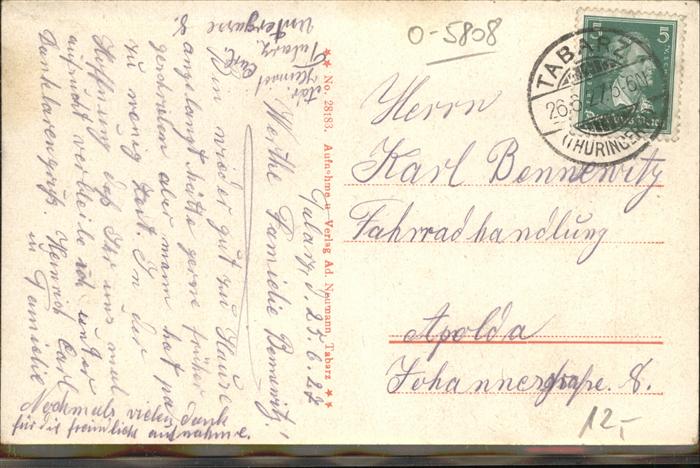 O-5808
5 5
TABARZ
26.6.27
(THÜRINGEN)
Herrn
Karl Bennewitz
Fahrradhandlung
Apolda
Johannesstraße 8.
12,-
★★ No. 28183. Aufnahme u. Verlag Ad. Neumann, Tabarz ★★
Heinrich
Carl
Tabarz
Untergasse
8.
Tabarz, d. 25.6.27
Werthe Familie Bennewitz!
Bin wieder gut zu Hause
angelangt hätte gerne früher
geschrieben aber mann hat ja
zu wenig Zeit. In der
Hoffnung daß Ihr uns mal
aufsucht verbleibe ich unter
Dankbarengrüß. Heinrich Carl
u. Familie
Nochmals vielen Dank
für die freundliche aufnahme.